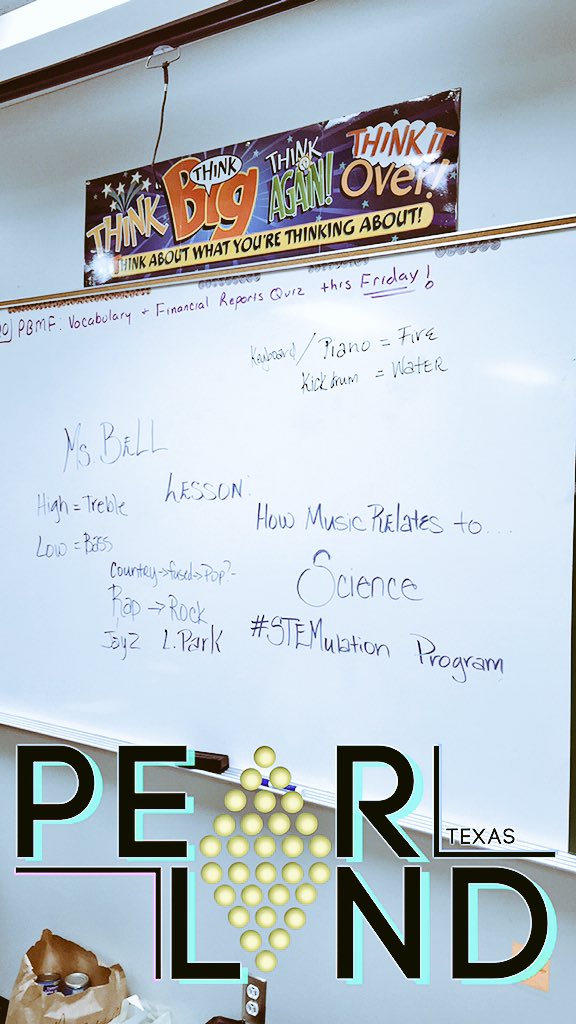 THINK
THINK Big
THINK AGAIN!
THINK IT Over!
THINK ABOUT WHAT YOU'RE THINKING ABOUT!
PBMF: Vocabulary + Financial Reports Quiz this Friday!
Keyboard / Piano = Fire
Kick drum = Water
Ms. BELL
LESSON:
High = Treble
How Music Relates to...
Low = Bass
Country → fused → Pop?
Science
Rap → Rock
#STEMulation Program
Jay Z L. Park
PEARL
TEXAS
LAND